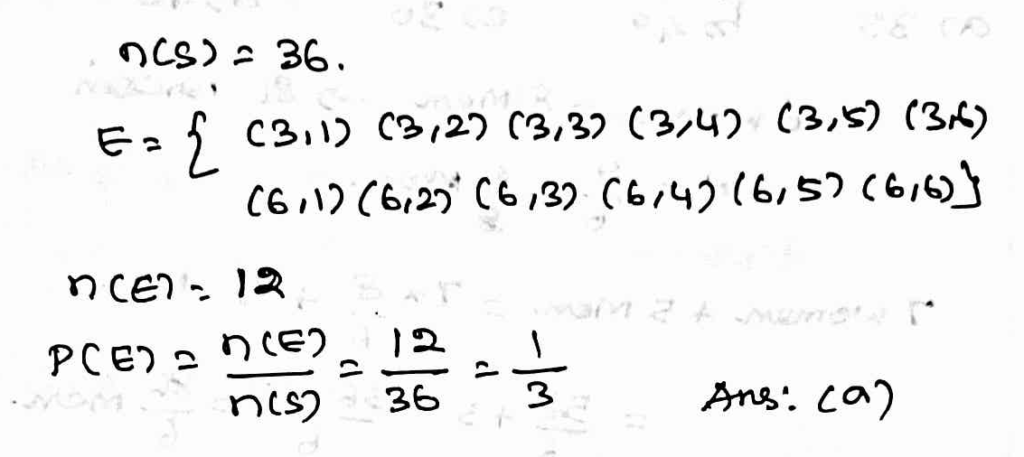 n(S) = 36.
E = { (3,1) (3,2) (3,3) (3,4) (3,5) (3,6)
(6,1) (6,2) (6,3) (6,4) (6,5) (6,6)}
n(E) = 12
P(E) = n(E)/n(S) = 12/36 = 1/3 Ans: (a)